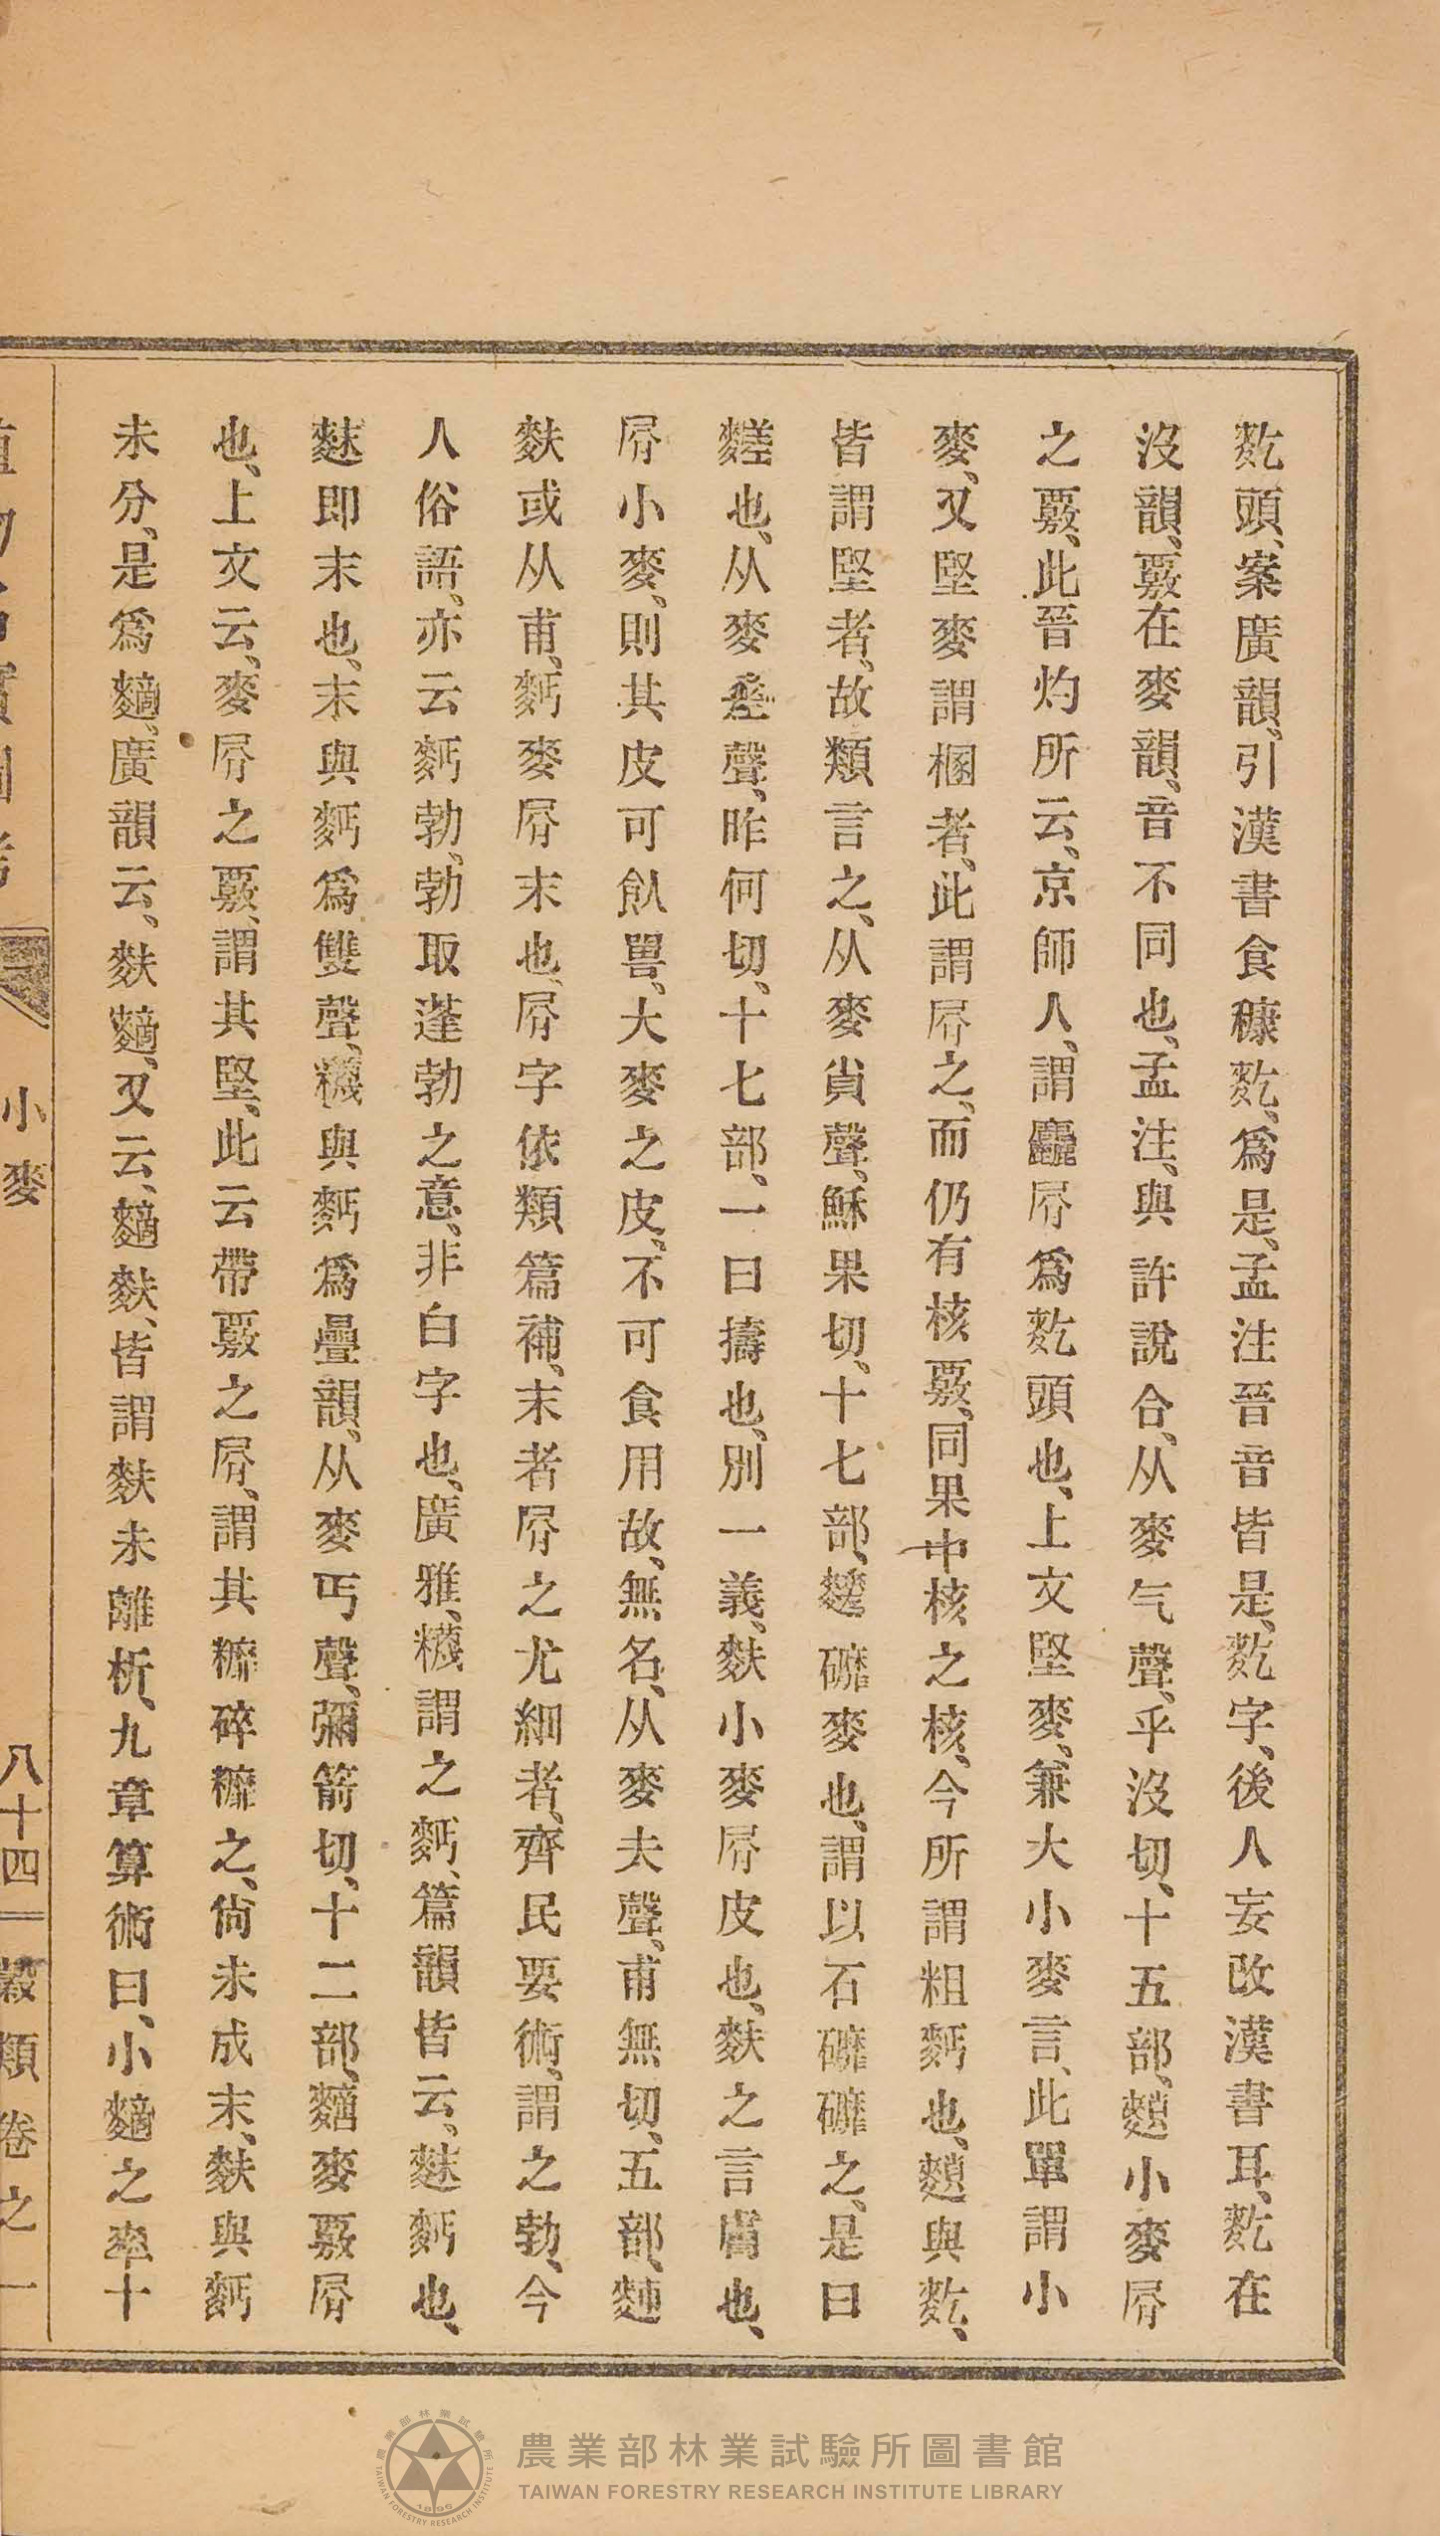 麧頭、案廣韻、引漢書食糠麧、爲是、孟注晉音皆是、麧字、後人妄改漢書耳、麧在
沒韻、覈在麥韻、音不同也、孟注、與許說合、从麥气聲、乎沒切、十五部、䴹小麥屑
之覈、此晉灼所云、京師人、謂麤屑爲麧頭也、上文堅麥、兼大小麥言、此單謂小
麥、又堅麥謂梱者、此謂屑之、而仍有核覈、同果中核之核、今所謂粗麪也、䴹與麧、
皆謂堅者、故類言之、从麥𧴪聲、穌果切、十七部、䴾礦麥也、謂以石䃺䃺之、是曰
䴾也、从麥𡍮聲、昨何切、十七部、一曰擣也、別一義、麩小麥屑皮也、麩之言膚也、
屑小麥、則其皮可飤嘼、大麥之皮、不可食用故、無名、从麥夫聲、甫無切、五部、䴸
麩或从甫、麪麥屑末也、屑字依類篇補、末者屑之尤細者、齊民要術、謂之勃、今
人俗語、亦云麪勃、勃取蓬勃之意、非白字也、廣雅、䊳謂之麪、篇韻皆云、䴲麪也、
䴲即末也、末與麪爲雙聲、䊳與麪爲疊韻、从麥丏聲、彌箭切、十二部、䵂麥覈屑
也、上文云、麥屑之覈、謂其堅、此云帶覈之屑、謂其䊳碎䊳之、尙未成末、麩與麪
未分、是爲䵂、廣韻云、麩䵂、又云、䵂麩、皆謂麩未離析、九章算術曰、小䵂之率十
小麥
八十四
穀類卷之一
農業部林業試驗所圖書館
TAIWAN FORESTRY RESEARCH INSTITUTE LIBRARY